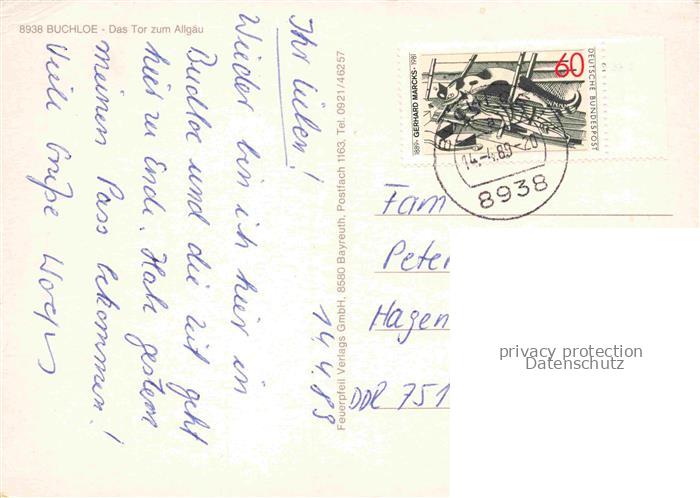 8938 BUCHLOE - Das Tor zum Allgäu
Ihr Lieben!
Wieder bin ich hier in
Buchloe und die Zeit geht
hier zu Ende. Habe gestern
meinen Pass bekommen!
Viele Grüße
14.4.89
Feuerpfeil Verlags GmbH, 8580 Bayreuth, Postfach 1163, Tel. 0921/46257
60
DEUTSCHE BUNDESPOST
1889-GERHARD MARCKS-1981
14.-4.89-20
8938
Fam
Peter
Hagen
DDR 751
privacy protection
Datenschutz